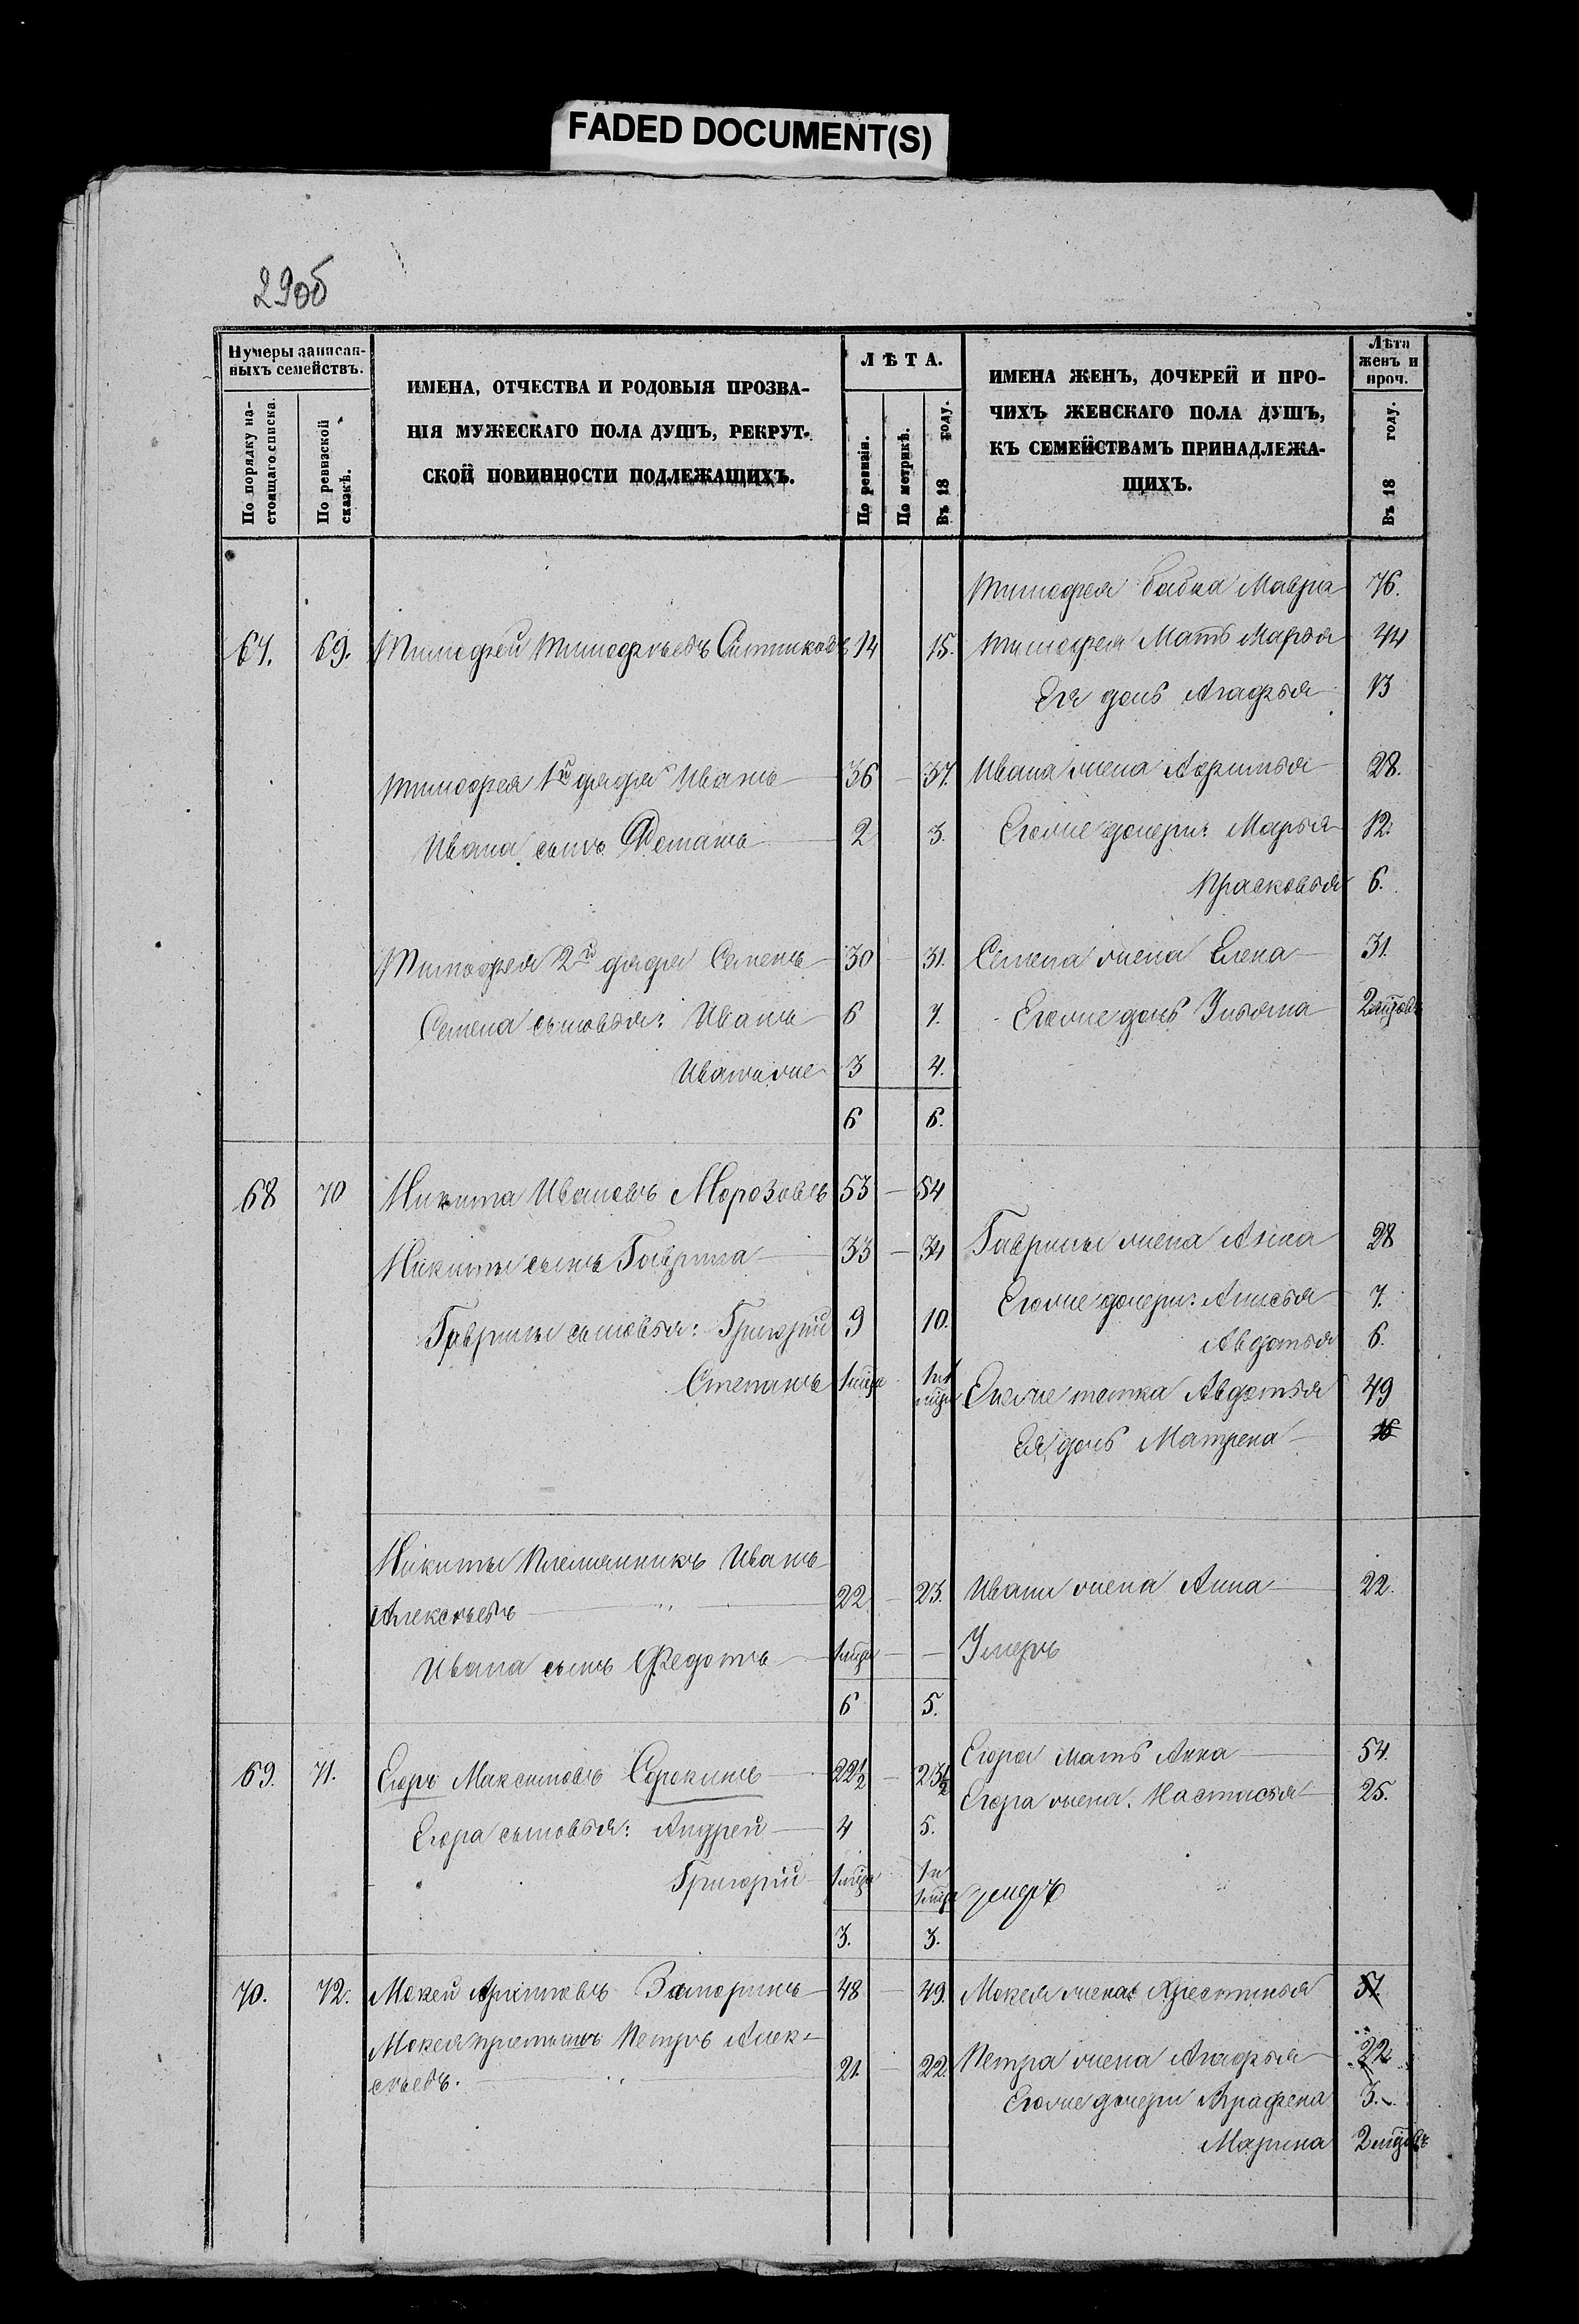 FADED DOCUMENT(S)
29об
Нумеры записан-
ныхъ семействъ.
По порядку на-
стоящаго списка.
По ревизской
сказкѣ.
ИМЕНА, ОТЧЕСТВА И РОДОВЫЯ ПРОЗВА-
НІЯ МУЖЕСКАГО ПОЛА ДУШЪ, РЕКРУТ-
СКОЙ ПОВИННОСТИ ПОДЛЕЖАЩИХЪ.
ЛѢТА.
По ревизіи.
По метрикѣ.
Въ 18 году.
ИМЕНА ЖЕНЪ, ДОЧЕРЕЙ И ПРО-
ЧИХЪ ЖЕНСКАГО ПОЛА ДУШЪ,
КЪ СЕМЕЙСТВАМЪ ПРИНАДЛЕЖА-
ЩИХЪ.
Лѣта
женъ и
проч.
Въ 18 году.
Тимофея бабка Мавра 76.
67. 69. Тимофей Тимофѣевъ Ситниковъ 14 15. Тимофея Мать Марья 44
Ея дочь Агафья 13
Тимофея 1й дядя Иванъ 36 — 37. Ивана жена Афимья 28.
Ивана сынъ 2 3. Егоже дочери: Марья 12.
Прасковья 6.
Тимофея 2й дядя Семенъ 30 — 31. Семена жена Елена 31.
Семена сыновья: Иванъ 6 7. Егоже дочь Ульяна 2 мцовъ
Иванъ же 3 4.
6 6.
68 70 Никита Ивановъ Морозовъ 53 — 54
Никиты сынъ Гаврила 33 — 34 Гаврилы жена Анна 28
Гаврилы сыновья: Григорій 9 10. Егоже дочери: Анисья 7.
Авдотья 6.
Степанъ 1 мца 1 и 1 мца Егоже тетка Авдотья 49
Ея дочь Матрена 16
Никиты Племянникъ Иванъ
Алексѣевъ 22 — 23. Ивана жена Анна 22.
Ивана сынъ Федотъ 1 мца — — Умеръ
6 5.
69. 71. Егоръ Максимовъ Сорокинъ 22½ — 23½ Егора мать Анна 54.
Егора жена Настасья 25.
Егора сыновья: Андрей 4 5.
Григорій 1 мца 1 и 1 мца умеръ
3. 3.
70. 72. Мокей Архиповъ 48 — 49. Мокея жена Хрестинья 51.
Мокея премышъ Петръ Алек-
сѣевъ. 21. — 22. Петра жена Агафья 22
Егоже дочери Аграфена 3.
Марина 2 мцовъ